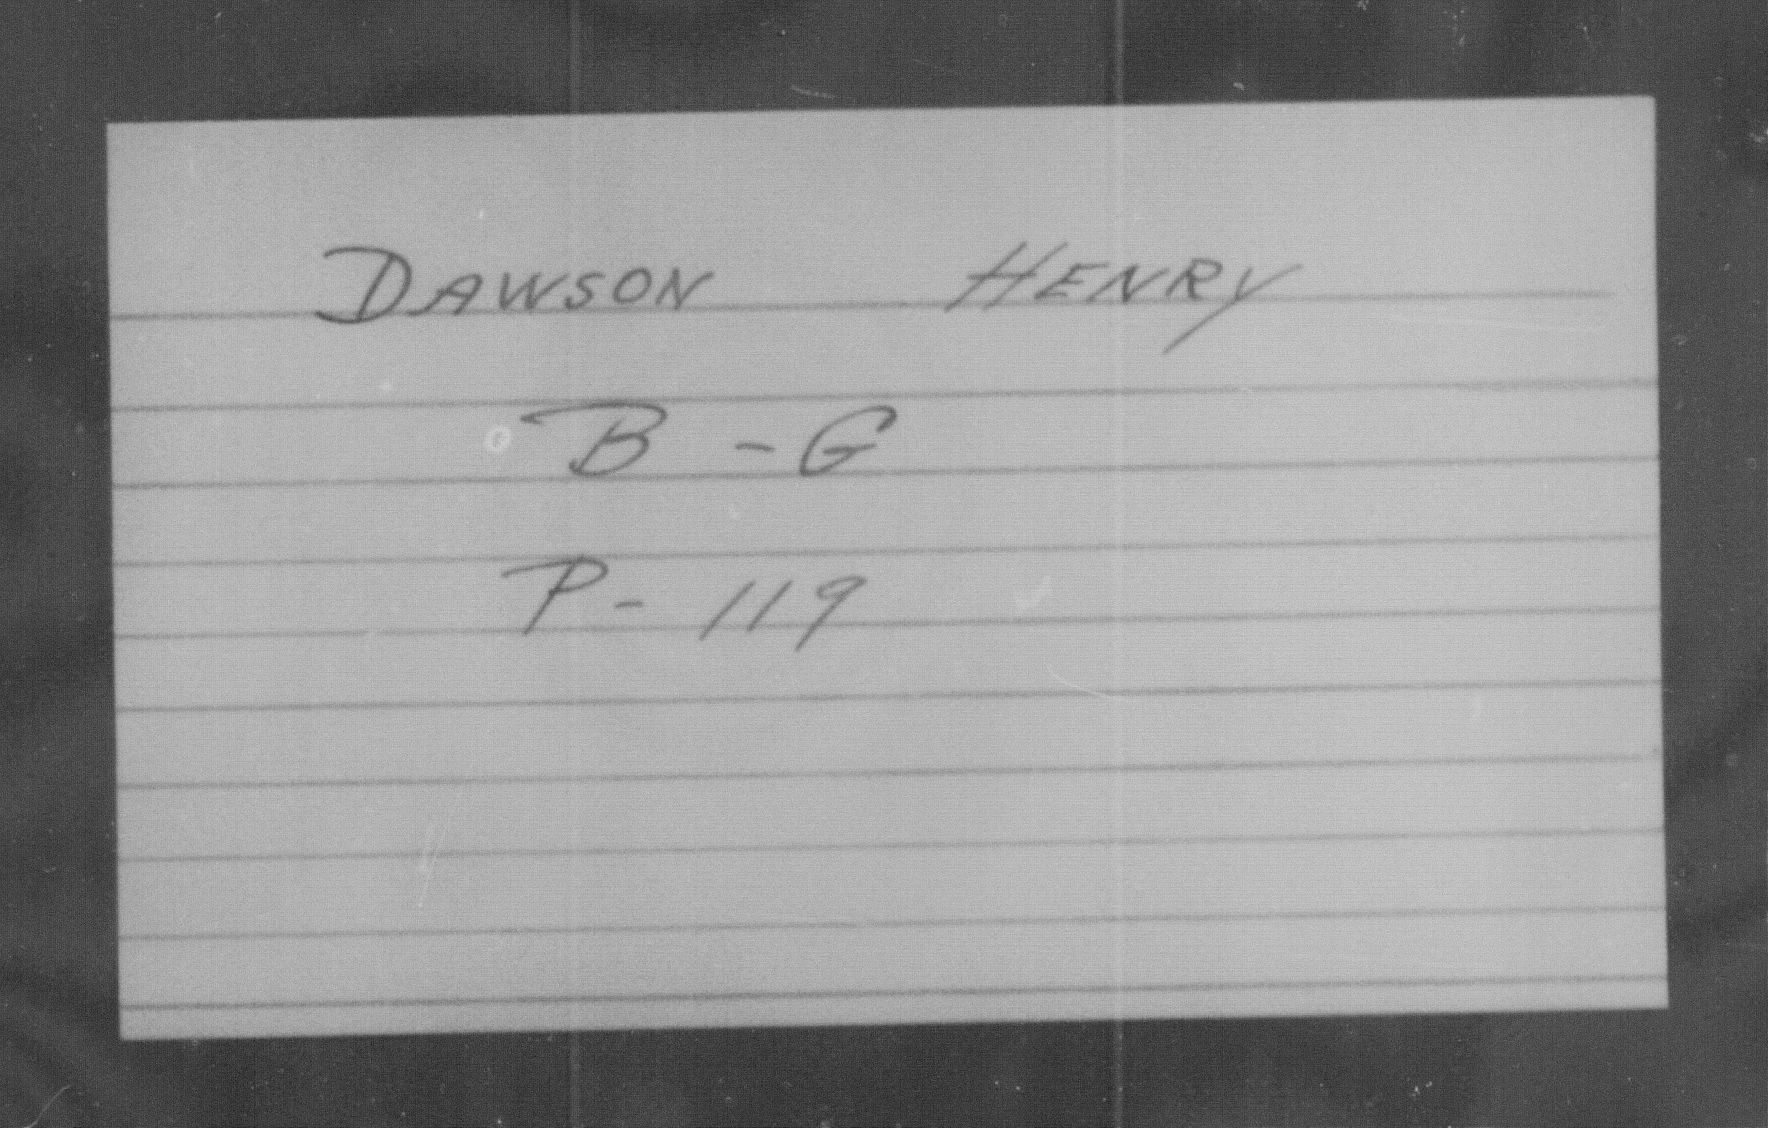 DAWSON HENRY
B - G
P - 119